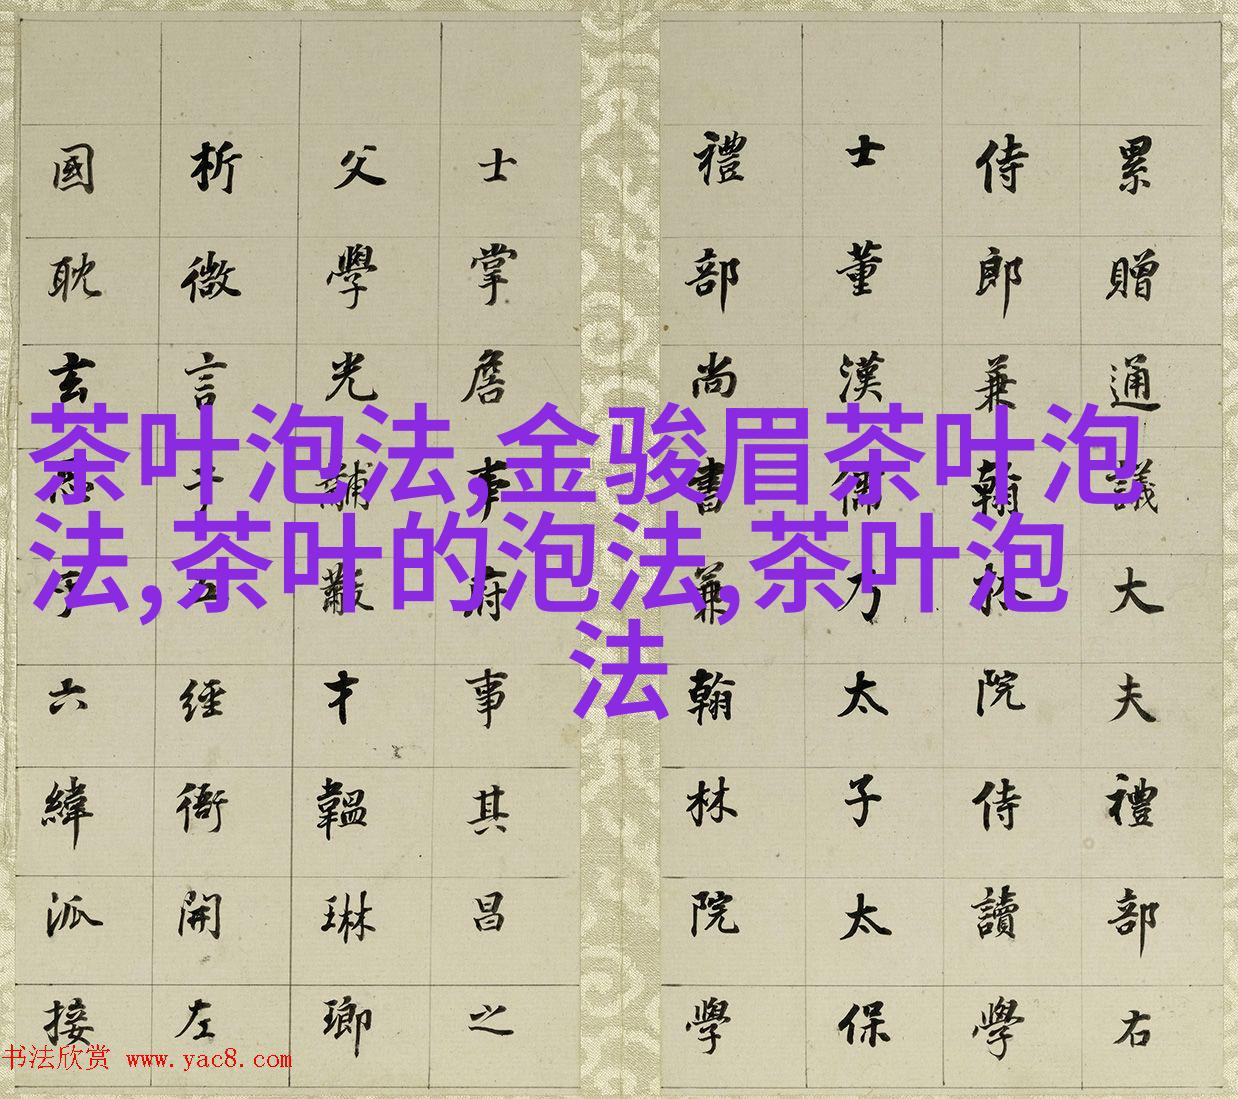 累贈通議大夫禮部右
侍郎兼翰林院侍讀學
士董漢儒乃太子太保
禮部尚書兼翰林院學
士掌詹事府事其昌之
父學光黼黻才韞琳瑯
析微言于經開左
國耽玄六緯派接
茶叶泡法,金骏眉茶叶泡
法,茶叶的泡法,茶叶泡
法
书法欣赏 www.yac8.com